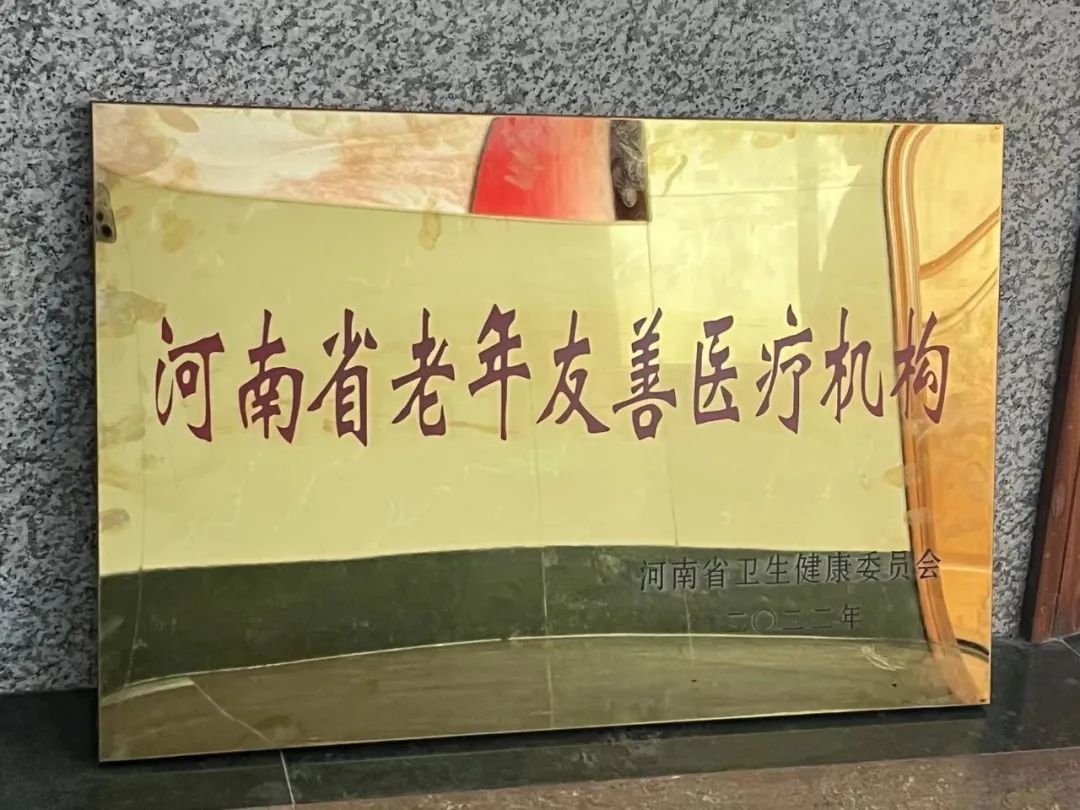 河南省老年友善医疗机构
河南省卫生健康委员会
二〇二二年